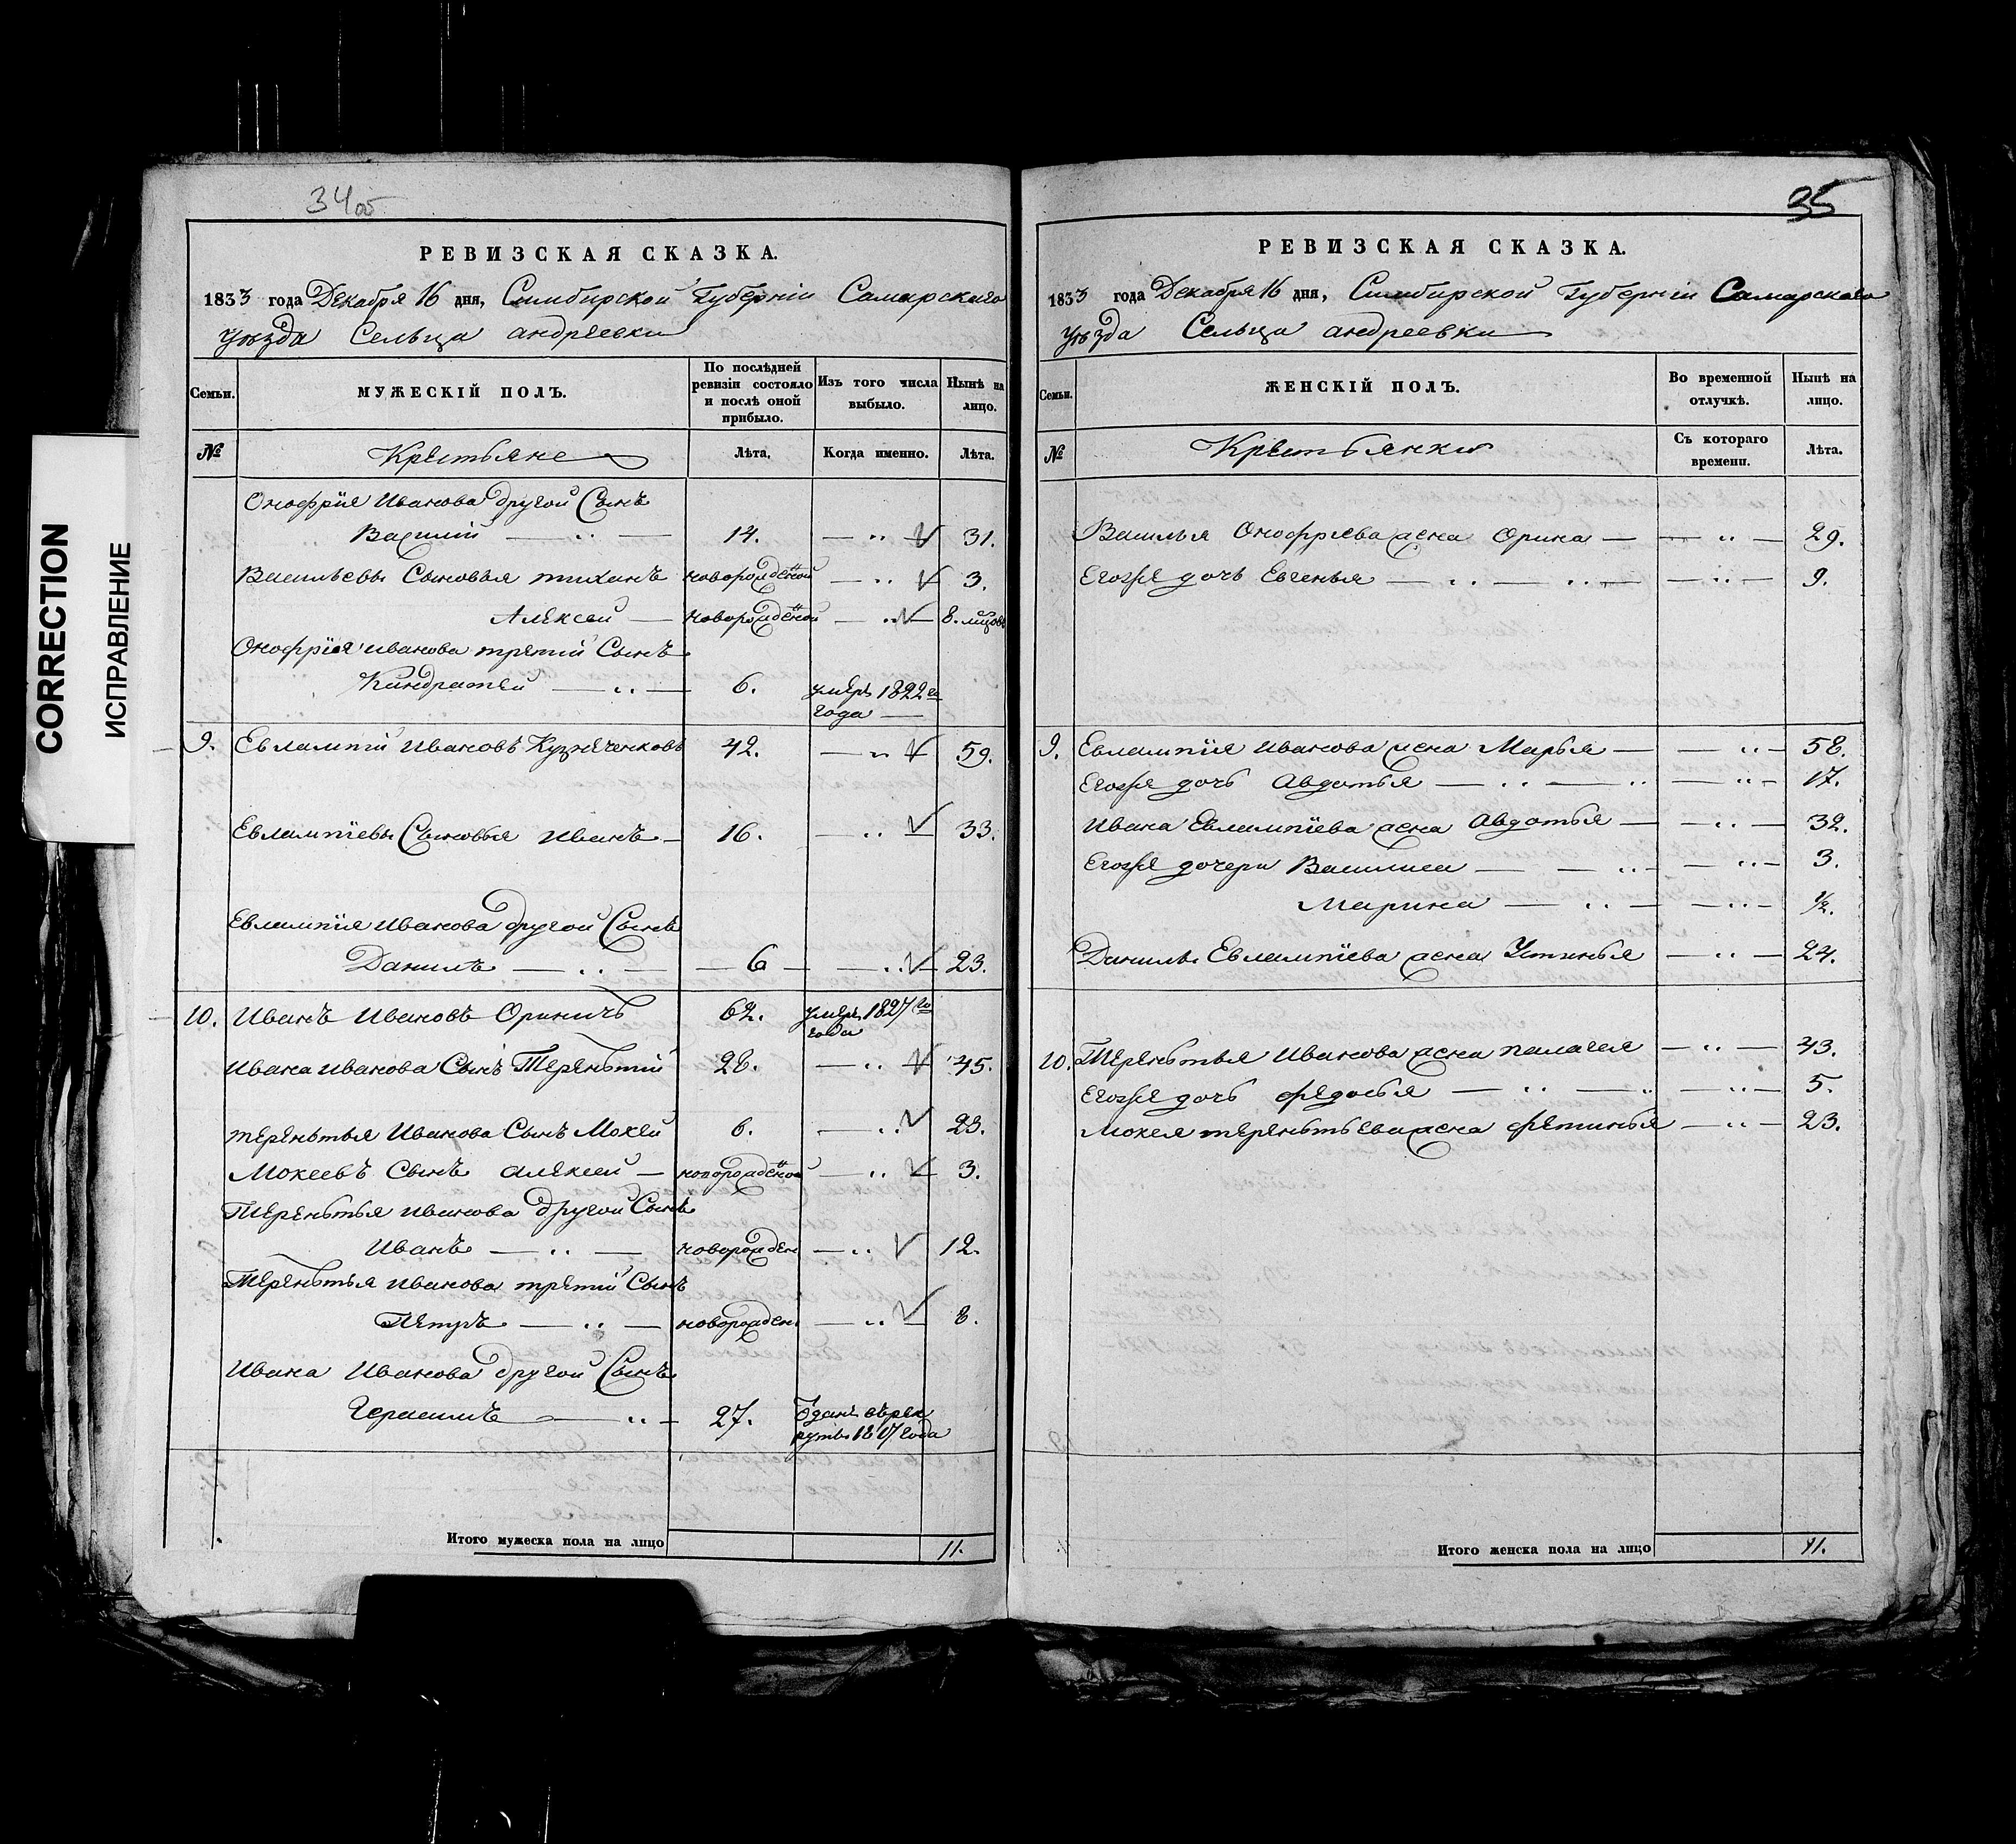 CORRECTION
ИСПРАВЛЕНИЕ
34 об
РЕВИЗСКАЯ СКАЗКА.
1833 года Декабря 16 дня, Симбирской Губерніи Самарскаго
уѣзда Сельца андреевки
Семьи.
МУЖЕСКІЙ ПОЛЪ.
По послѣдней ревизіи состояло и послѣ оной прибыло.
Изъ того числа выбыло.
Нынѣ на лицо.
№
Крестьяне
Лѣта,
Когда именно.
Лѣта.
Онофрія Иванова другой Сынъ
Василій — „ — 14. — „ — 31.
Васильевы Сыновья тиханъ новорожденой — „ — 3.
Алексей — новорожденой — „ — 8. мцовъ
Онофрія иванова третій Сынъ
Киндратей — „ — 6. умеръ 1822 го
года —
9. Евлампій Ивановъ Кузнеченковъ 42. — „ — 59.
Евлампіевы Сыновья Иванъ — 16. — „ — 33.
Евлампія Иванова другой Сынъ
Данилъ — „ — 6 — — „ — 23.
10. Иванъ ИвановъОриничъ 62. умеръ 1827 го
года
Ивана иванова Сынъ Терентій 28. — „ — 45.
терентья Иванова Сынъ Мокей 6. — „ — 23.
Мокеевъ Сынъ алексей — новорожденой — „ — 3.
Терентья иванова другой Сынъ
Иванъ — „ — новорожден — „ 12.
Терентья иванова третій Сынъ
Петръ — „ — новорожден — „ — 8.
Ивана Иванова другой Сынъ
Герасимъ — „ — 27. Одан врек
руты 1817 года
Итого мужеска пола на лицо 11.
35
РЕВИЗСКАЯ СКАЗКА.
1833 года Декабря 16 дня, Симбирской Губерніи Самарскаго
уѣзда Сельца андреевки
Семьи.
ЖЕНСКІЙ ПОЛЪ.
Во временной отлучкѣ.
Нынѣ на лицо.
№
Крестьянки
Съ котораго времени.
Лѣта.
Василья Онофриева жена Орина — — „ — 29.
Егоже дочь Евгенья — „ — „ — — „ — 9.
9. Евлампія иванова жена Марья — — „ — 58.
Егоже дочь Авдотья — „ — „ — „ — 17.
Ивана Евлампіева жена Авдотья — — „ — 32.
Егоже дочери Василиса — — „ — — „ — 3.
Марина — „ — — „ — 1/2.
Данилы Евлампіева жена Устинья — „ — 24.
10. Терентья Иванова жена палагея — „ — 43.
Егоже дочь федосья — „ — „ — „ — 5.
Мокея терентьева жена фетинья — „ — 23.
Итого женска пола на лицо 11.